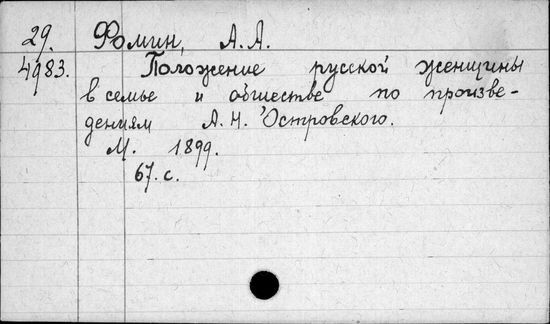 29. Фомин, А.А.
4983. Положение русской женщины
в семье и обществе по произве-
дениям А.Н. Островского.
М. 1899.
67. с.